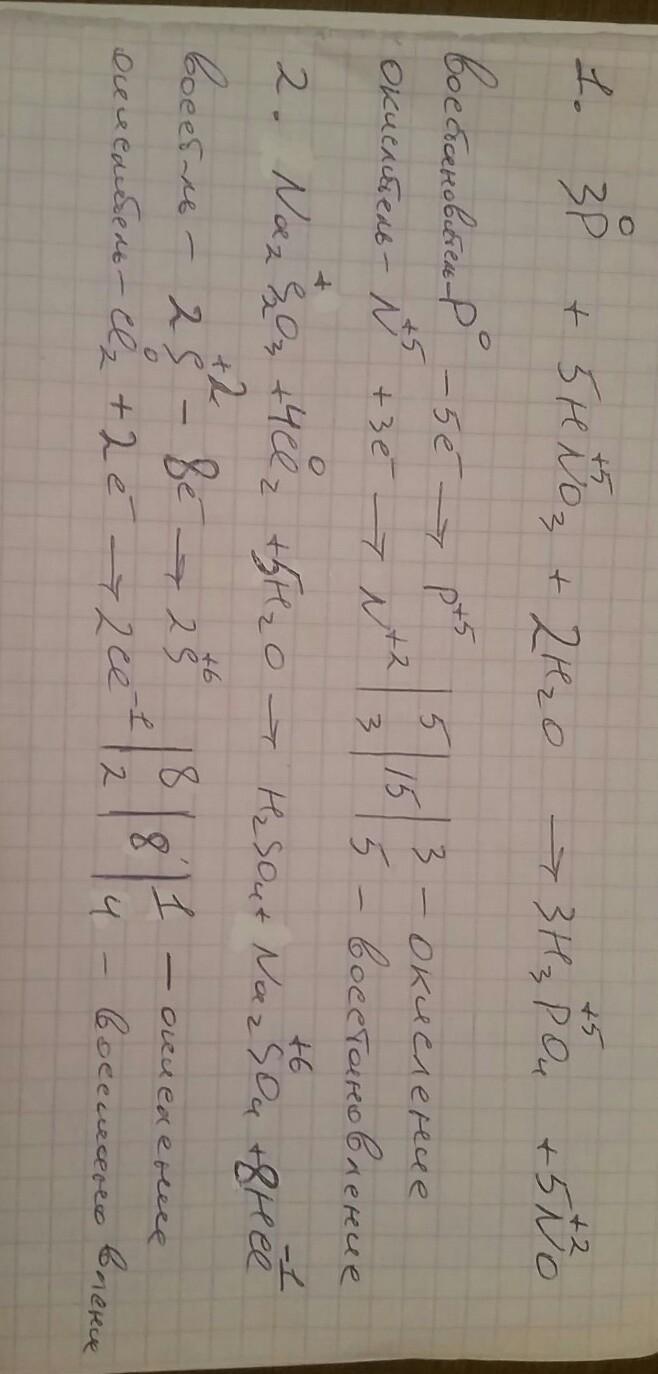 1. 3P⁰ + 5HN⁺⁵O₃ + 2H₂O → 3H₃P⁺⁵O₄ + 5N⁺²O
восстановитель – P⁰ – 5e⁻ → P⁺⁵ | 5 | 15 | 3 – окисление
окислитель – N⁺⁵ + 3e⁻ → N⁺² | 3 | 5 – восстановление
2. Na₂S₂⁺O₃ + 4Cl₂⁰ + 5H₂O → H₂SO₄ + Na₂S⁺⁶O₄ + 8HCl⁻¹
восст-ль – 2S⁺² – 8e⁻ → 2S⁺⁶ | 8 | 8 | 1 – окисление
окислитель – Cl₂⁰ + 2e⁻ → 2Cl⁻¹ | 2 | 4 – восстановление